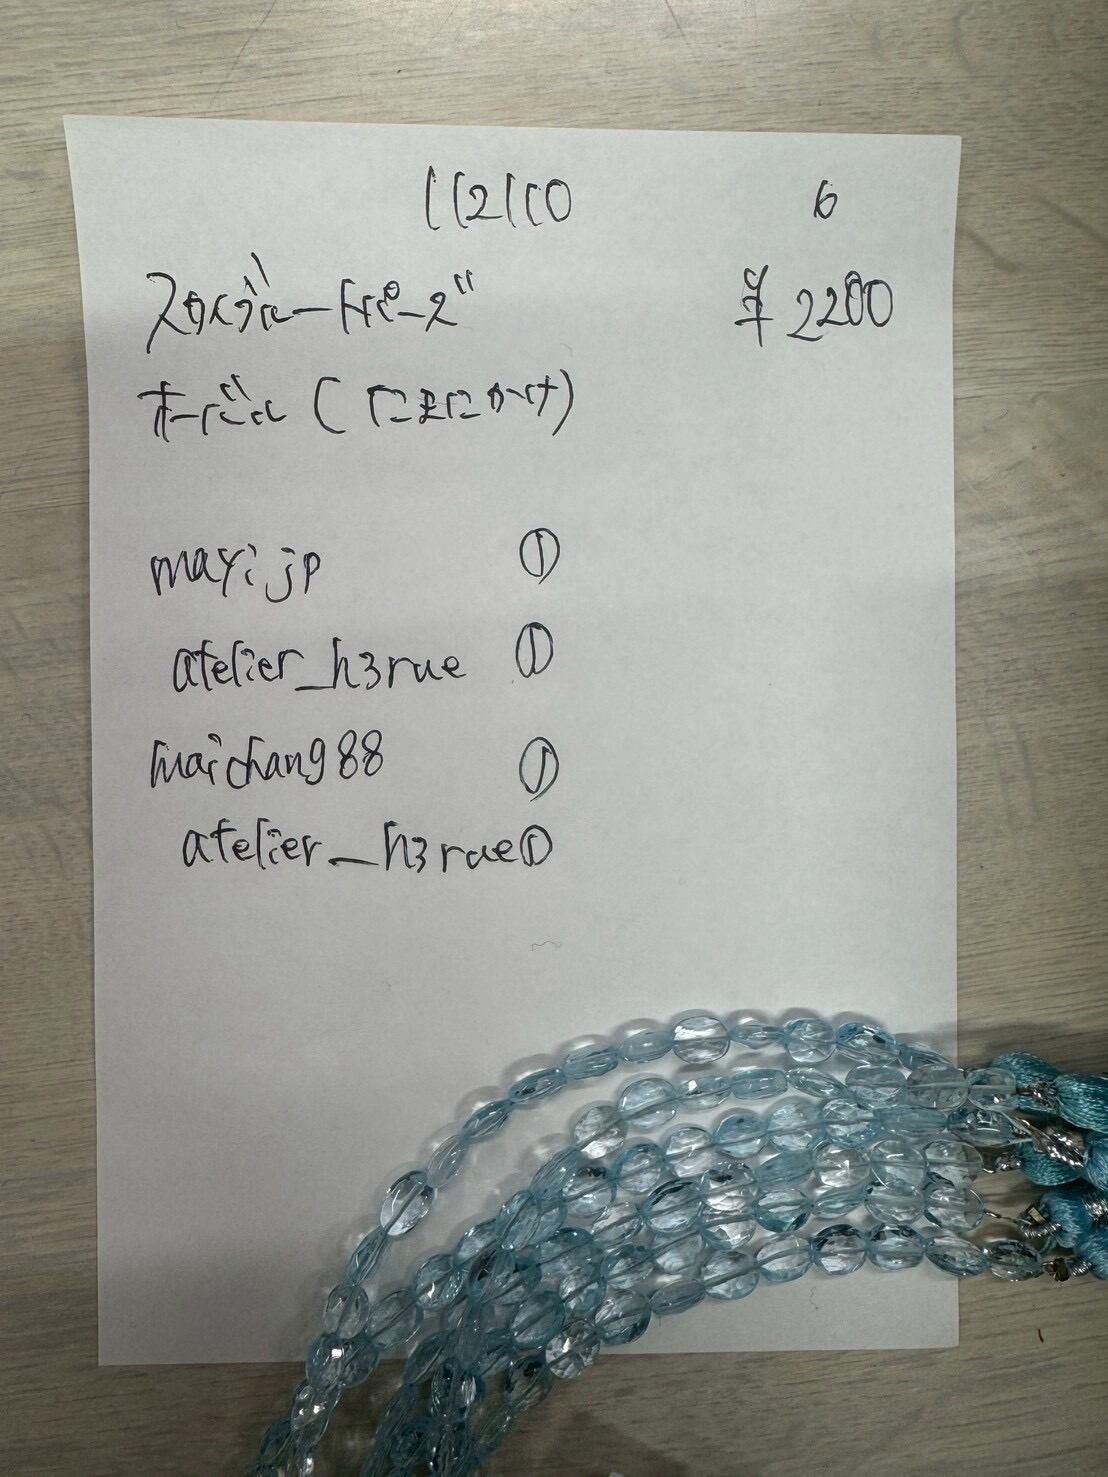 112110 6
スカイブルートパーズ ¥2200
オーバル(たまにかけ)
mayijp ①
atelier_h3rue ①
maichang88 ①
atelier_h3rue①